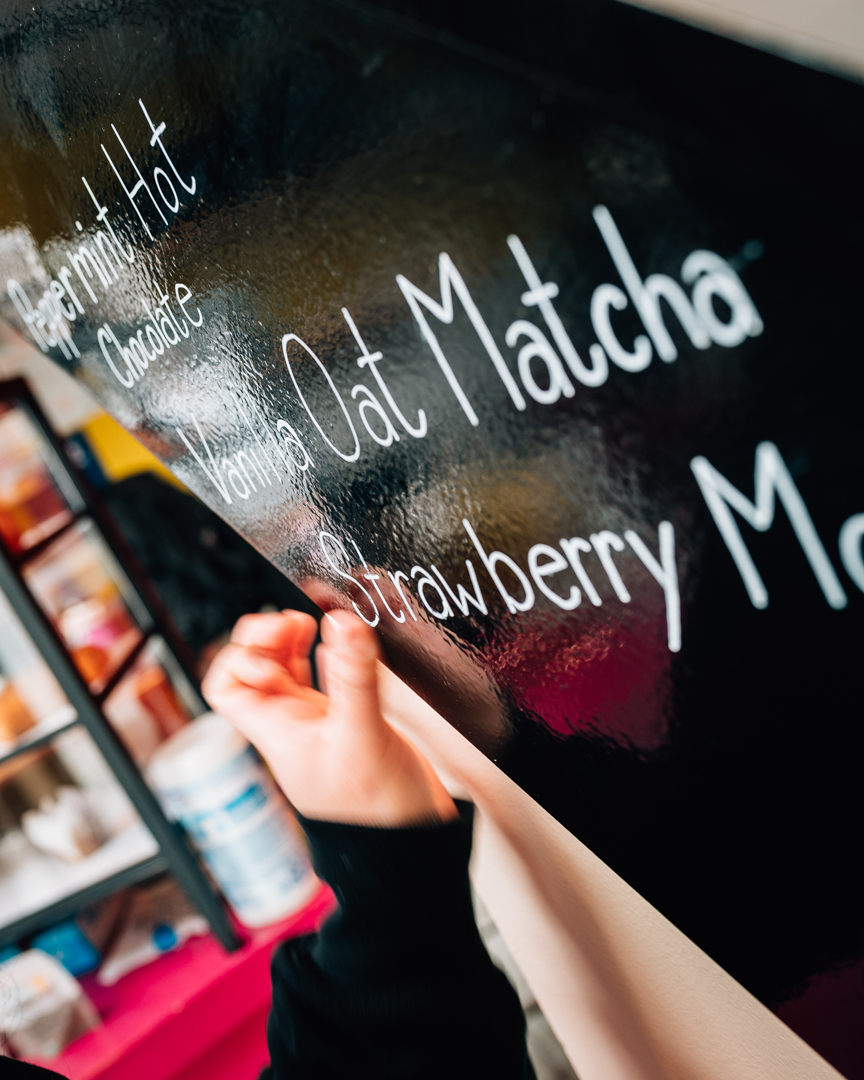 Peppermint Hot
Chocolate
Vanilla Oat Matcha
Strawberry Mo